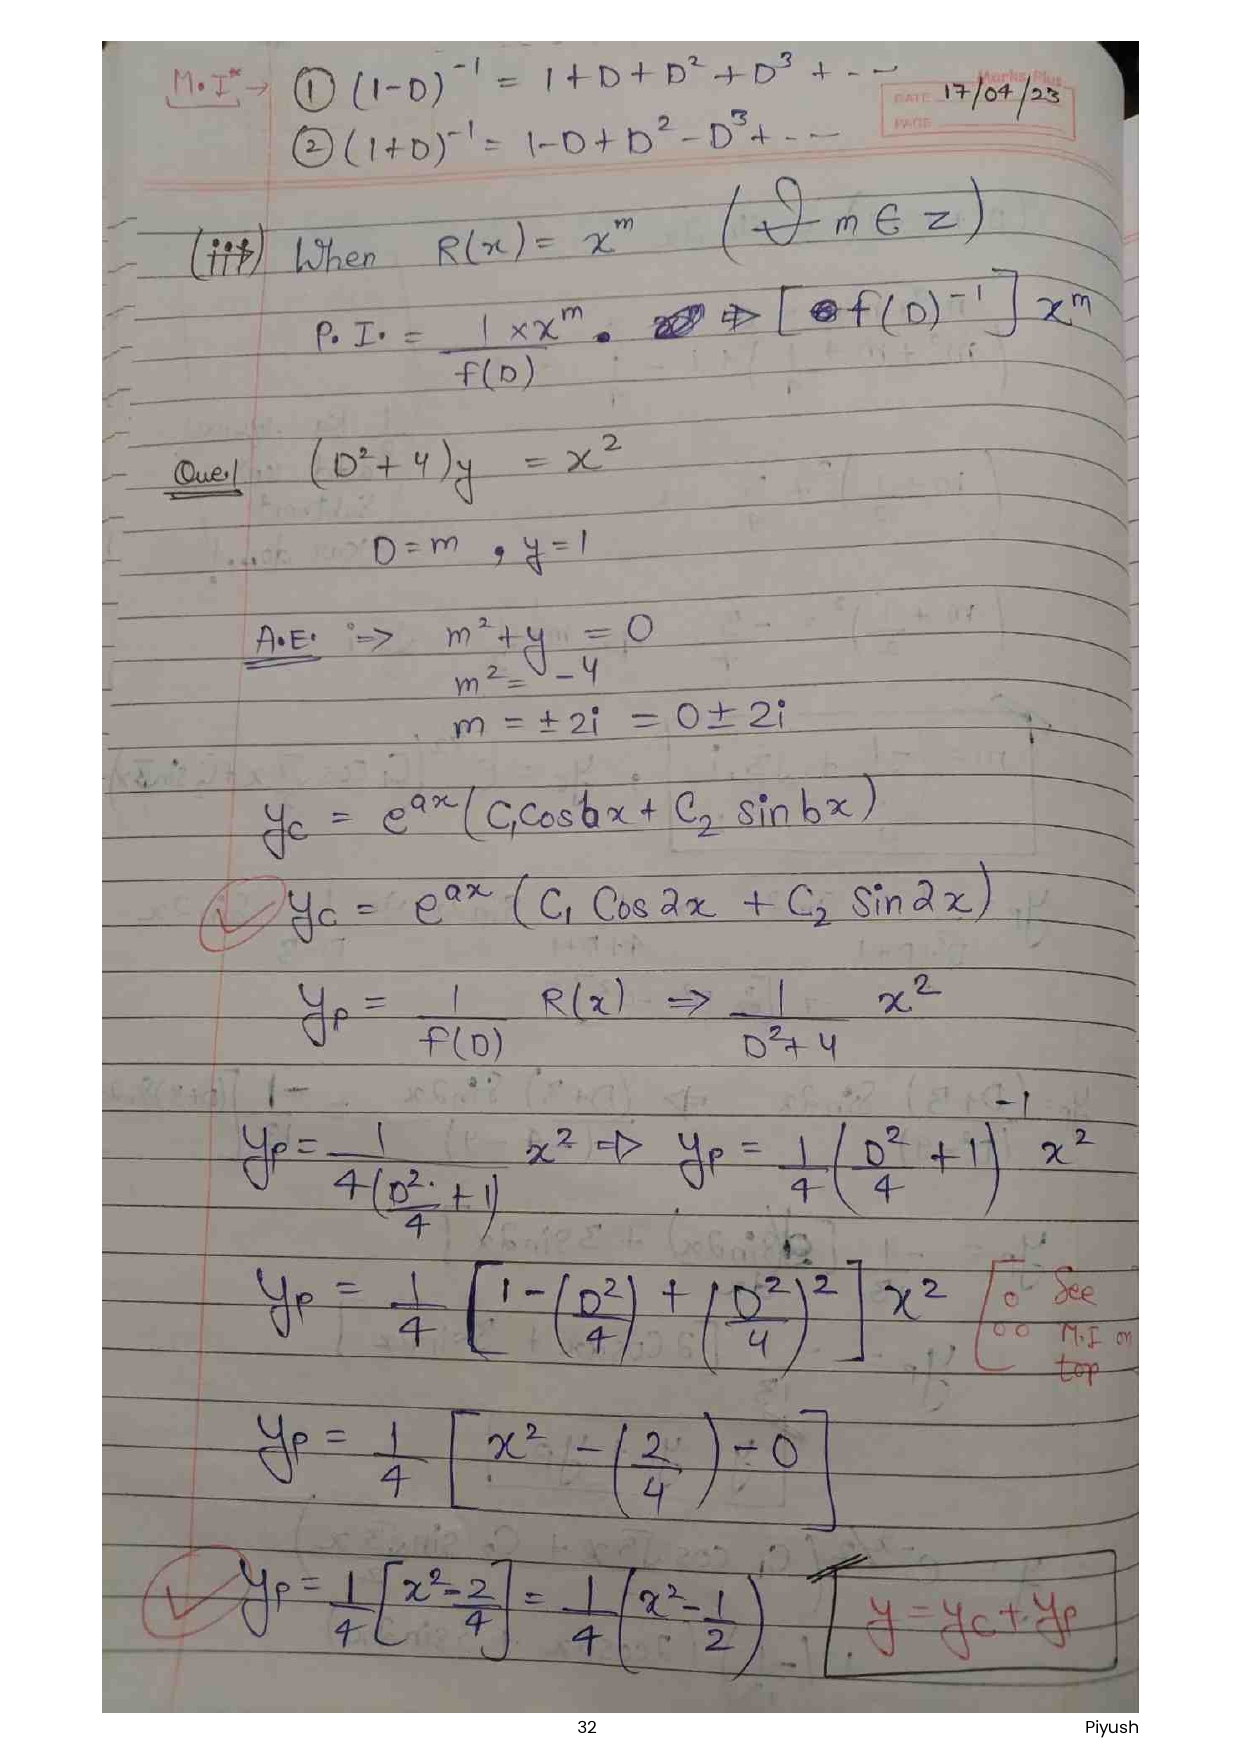 M.I* → ① (1-D)⁻¹ = 1+D+D²+D³+---
Marks Plus
DATE 17/04/23
PAGE
② (1+D)⁻¹ = 1-D+D²-D³+---
(iii) When R(x) = xᵐ ( m ∈ z)
P.I. = 1/f(D) × xᵐ. ⇒ [f(D)⁻¹] xᵐ
Que/ (D²+4)y = x²
D=m , y=1
A.E. :→ m²+y = 0
m² = -4
m = ±2i = 0±2i
yc = eᵃˣ(C₁Cosbx + C₂ sinbx)
yc = eᵃˣ (C₁ Cos2x + C₂ Sin2x)
yp = 1/f(D) R(x) ⇒ 1/(D²+4) x²
yp = 1/(4(D²/4 + 1)) x² ⇒ yp = 1/4 (D²/4 + 1)⁻¹ x²
yp = 1/4 [1-(D²/4) + (D²/4)²] x² [∵ See
M.I on
top
yp = 1/4 [x² - (2/4) - 0]
yp = 1/4 [x² - 2/4] = 1/4 (x² - 1/2) y = yc + yp
32 Piyush